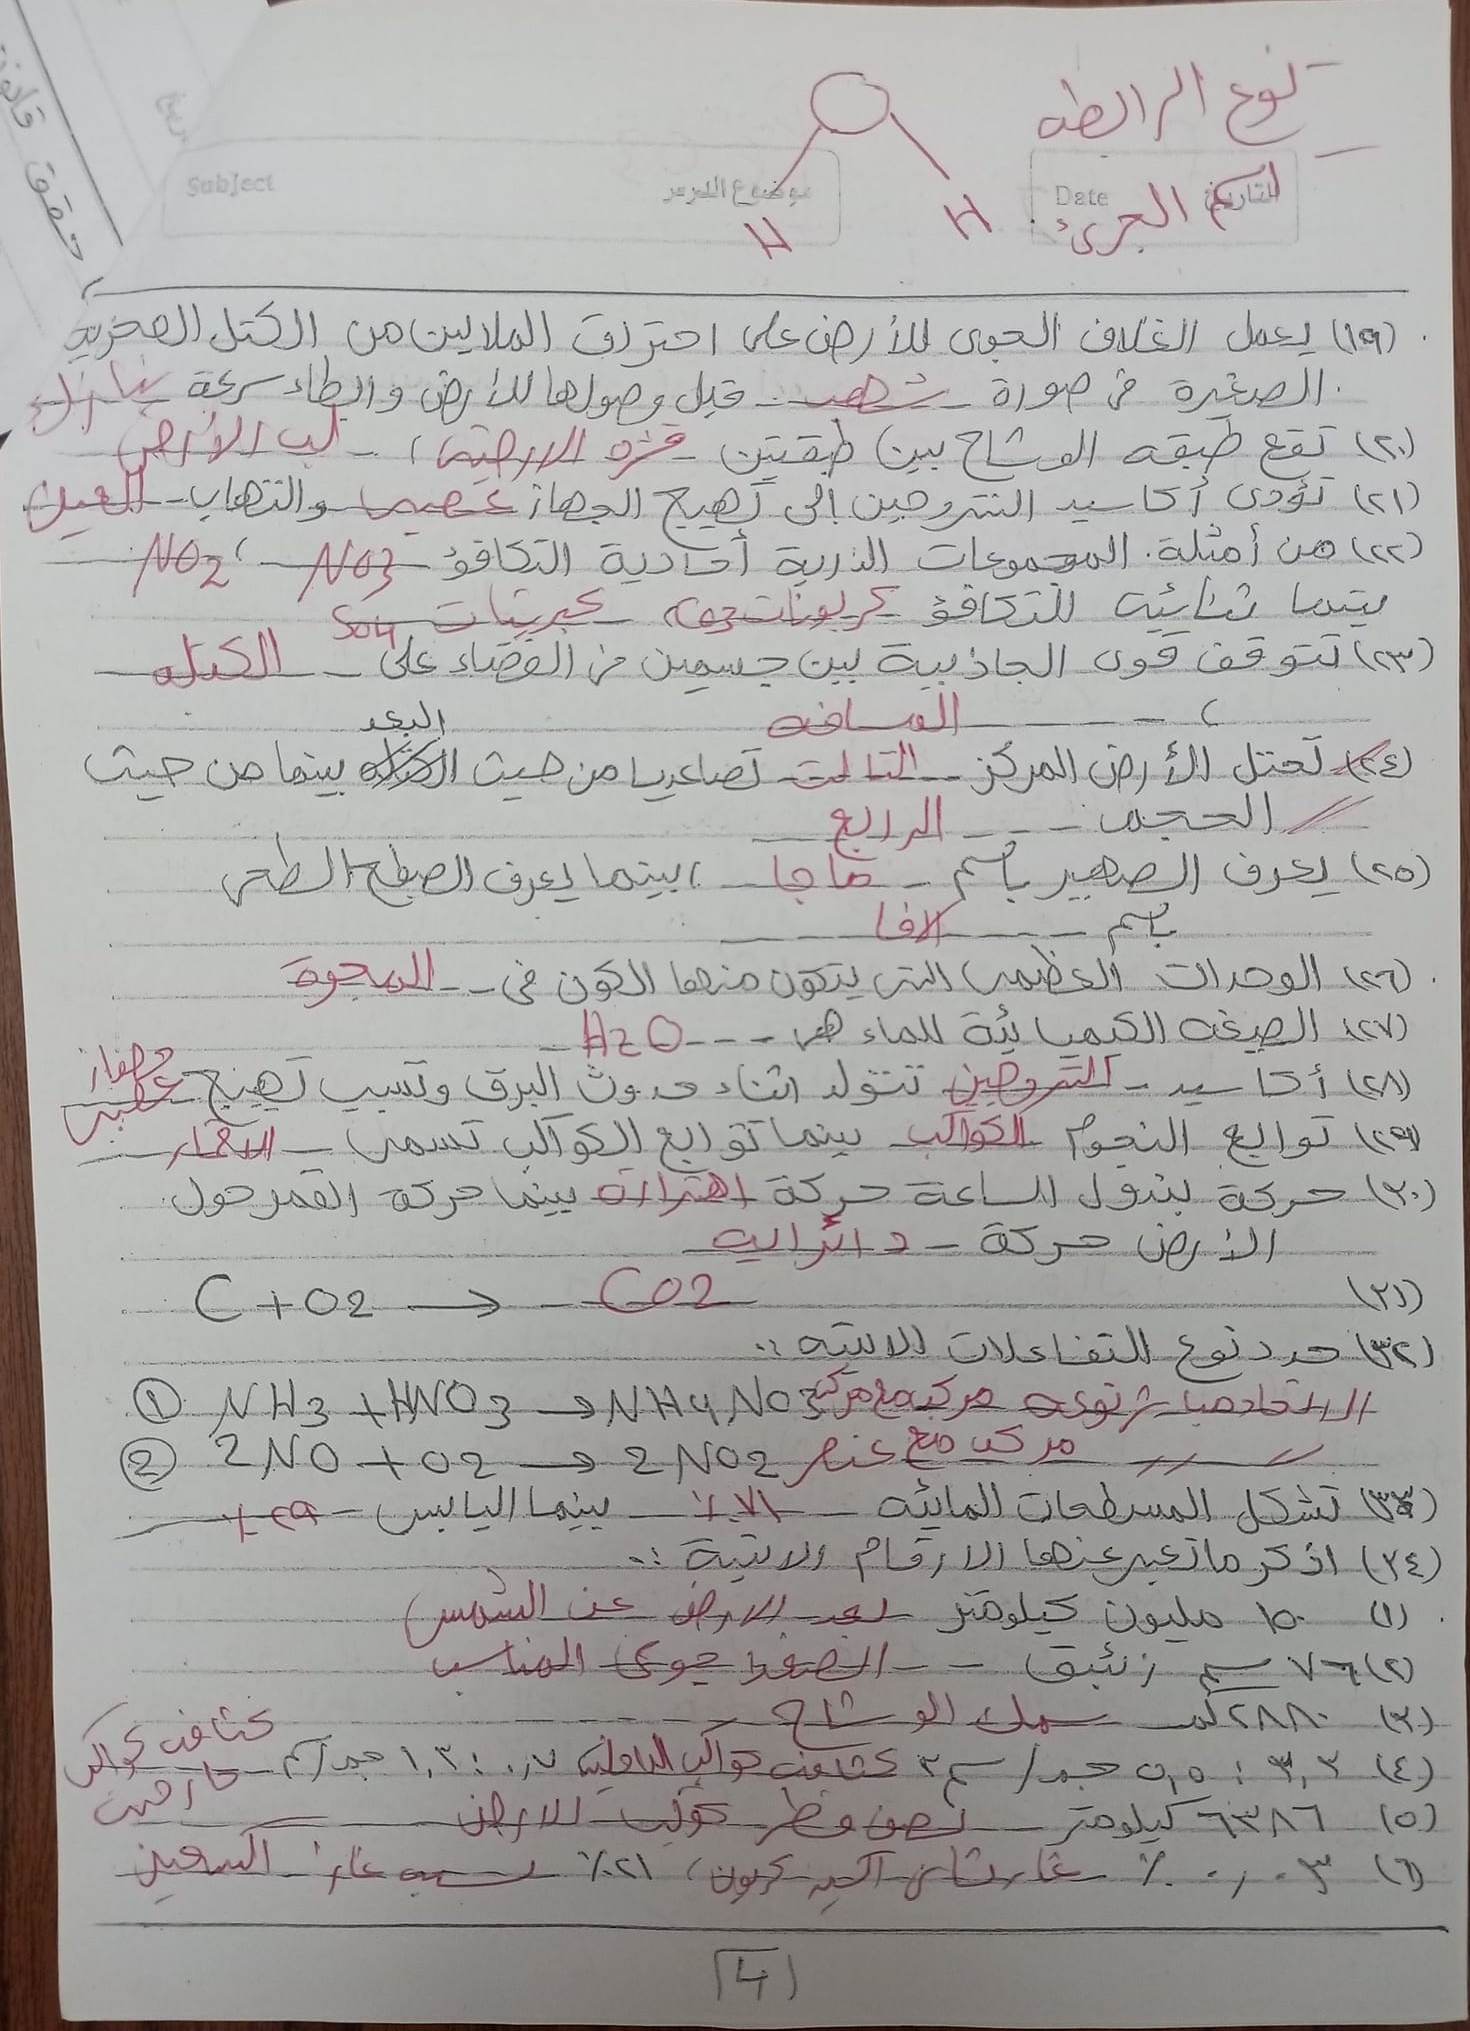 نوع الرابطه
Subject
موضوع الدرس
Date
التاريخ
اسم الجزئ
H
H
(١٩) يعمل الغلاف الجوى للأرض على احتراق الملايين من الكتل الصخرية
الصغيرة فى صورة شهب قبل وصولها للأرض وابطاء سرعة نيازك
(٢٠) تقع طبقه الوشاح بين طبقتين قشره الارضية، لب الأرض
(٢١) تؤدى أكاسيد النتروجين إلى تهيج الجهاز عصبى والتهاب العين
(٢٢) من أمثلة المجموعات الذرية أحادية التكافؤ NO3، NO2
بينما ثنائية التكافؤ كربونات CO3 كبريتات SO4
(٢٣) تتوقف قوى الجاذبية بين جسمين فى الفضاء على الكتله
، المسافه
(٢٤) تحتل الأرض المركز التالت تصاعديا من حيث البعد بينما من حيث
الحجم الرابع
(٢٥) يعرف الصهير باسم ماجا، بينما يعرف الصفح
باسم لافا
(٢٦) الوحدات العظمى التى يتكون منها الكون فى المجرة
(٢٧) الصيغه الكيميائية للماء هى H2O
(٢٨) أكاسيد النتروجين تتولد اثناء حدوث البرق وتسبب تهيج جهاز عصبى
(٢٩) توابع النجوم الكواكب بينما توابع الكواكب تسمى اقمار
(٣٠) حركة بندول الساعة حركة اهتزازه بينما حركة القمر حول
الأرض حركة دائرايه
(٣١) C + O2 → CO2
(٣٢) حدد نوع التفاعلات الاتيه :
① NH3 + HNO3 → NH4NO3 مركب مع مركب
② 2NO + O2 → 2NO2 مركب مع عنصر
(٣٣) تشكل المسطحات المائيه ٧١٪ بينما اليابس ٢٩٪
(٣٤) اذكر ما تعبر عنها الارقام الاتية :
(١) ١٥٠ مليون كيلومتر بعد الارض عن الشمس
(٢) ٧٦ سم زئبق الضغط جوى المناسب
(٣) ٢٨٨٠ كم سمك الوشاح
(٤) ٣,٣ : ٥,٥ جم/سم٣ كثافه كواكب الداخليه ٠,٧ : ١,٣ جم/سم كثافه كواكب خارجيه
(٥) ٦٣٨٦ كيلومتر نصف قطر كوكب الارض
(٦) ٠,٠٣ ٪ غاز ثانى اكسيد كربون، ٢١٪ نسبه غاز اكسجين
4